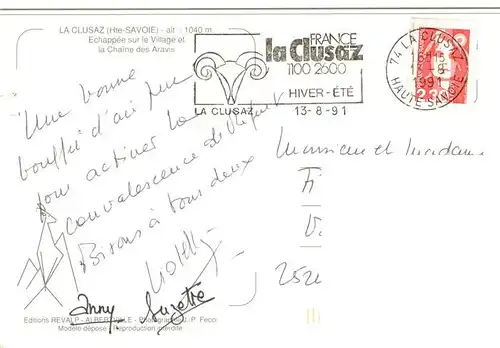 LA CLUSAZ (Hte-SAVOIE) - alt : 1040 m
Echappée sur le Village et
la Chaîne des Aravis
FRANCE
la Clusaz
1100 2600
HIVER - ÉTÉ
LA CLUSAZ 13-8-91
74 LA CLUSAZ
1991
HAUTE SAVOIE
Une bonne
bouffée d'air pur
pour activer la
convalescence de
Bisous à tous deux
Anny Suzette
Monsieur et Madame
Fi
V.
252
Editions REVALP - ALBERTVILLE - Photographie J.-P. Feco
Modèle déposé - Reproduction interdite